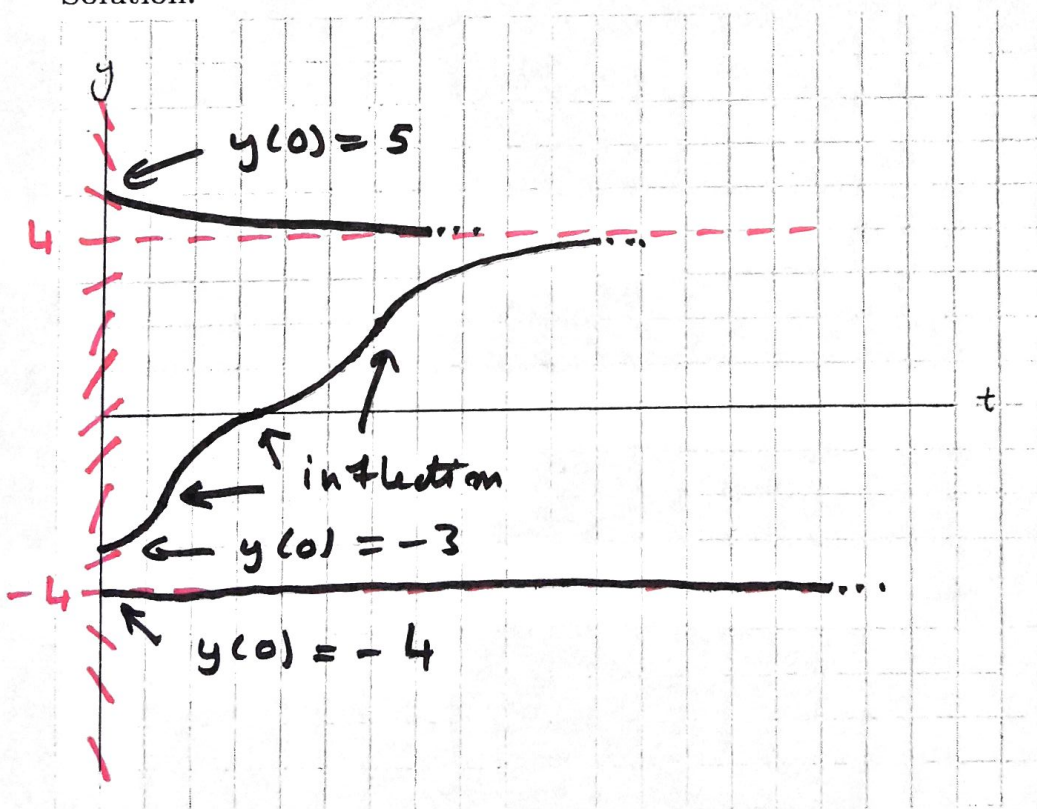 Solution:
y
y(0) = 5
4
t
inflection
y(0) = -3
-4
y(0) = - 4